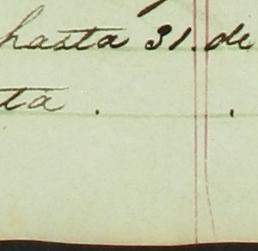 hasta 31. de
ta . .